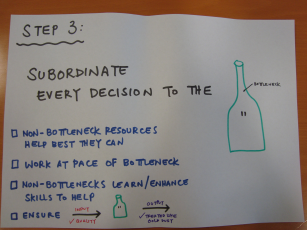 STEP 3:
SUBORDINATE
EVERY DECISION TO THE
BOTTLENECK
NON-BOTTLENECK RESOURCES
HELP BEST THEY CAN
WORK AT PACE OF BOTTLENECK
NON-BOTTLENECKS LEARN/ENHANCE
SKILLS TO HELP
ENSURE
INPUT
✓ QUALITY
OUTPUT